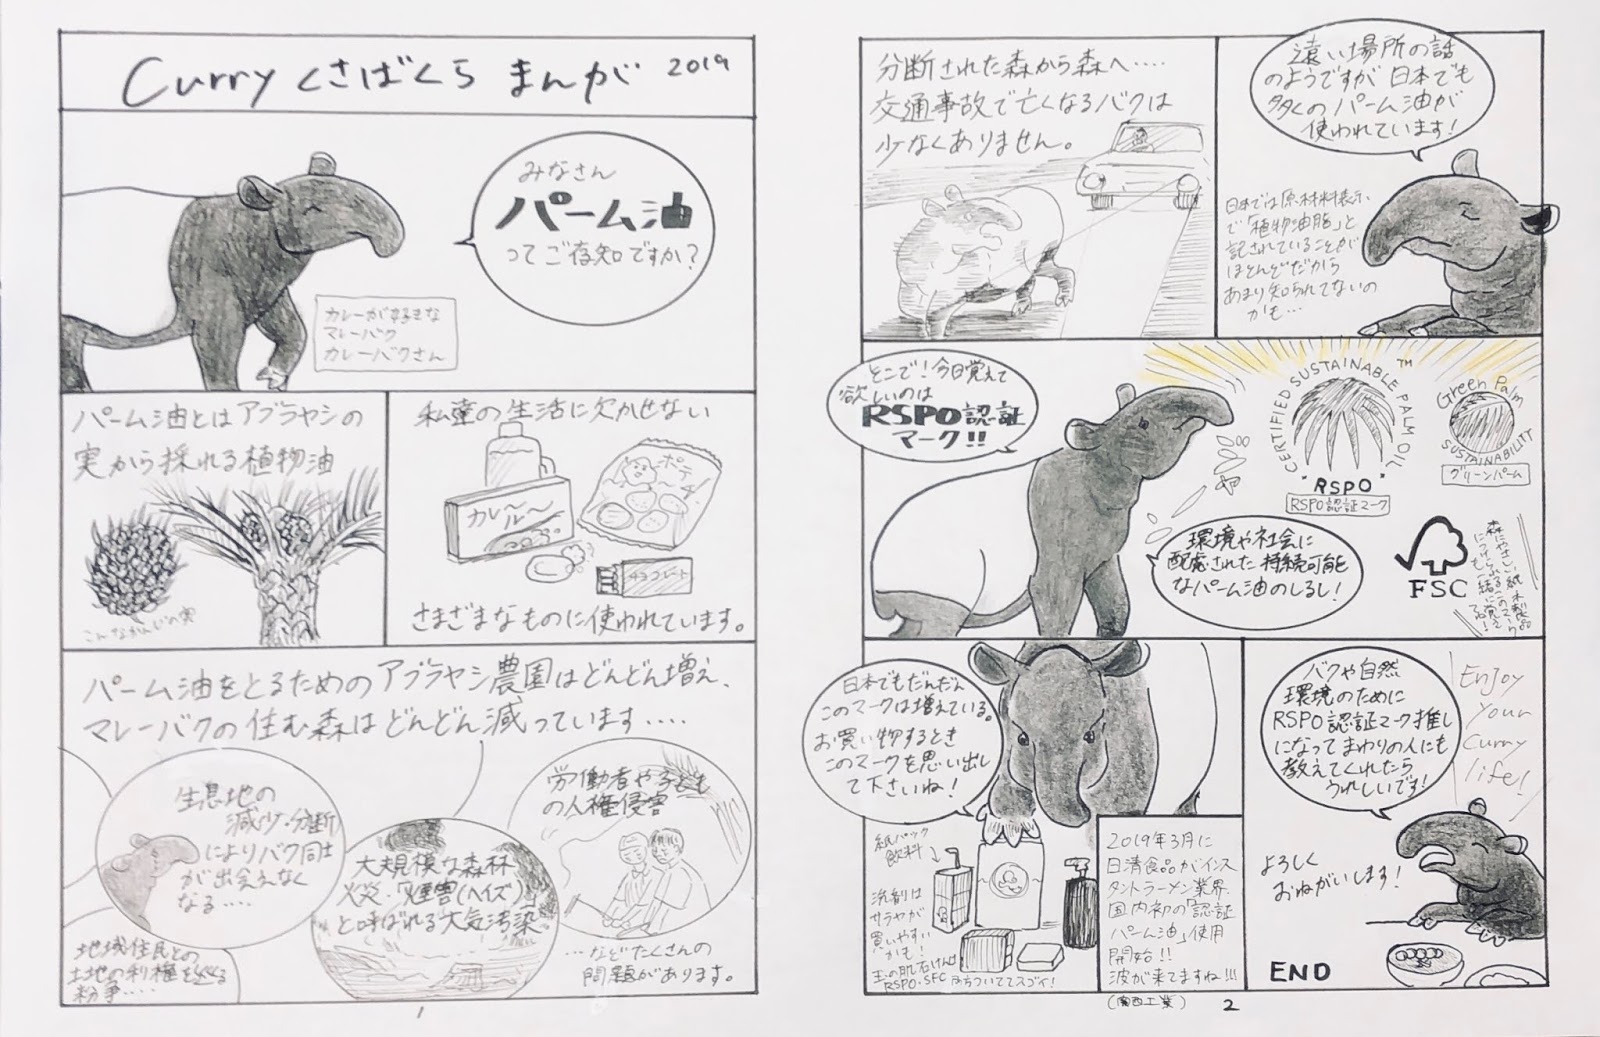 Curry くさばくら まんが 2019
みなさん
パーム油
ってご存知ですか?
カレーが好きな
マレーバク
カレーバクさん
パーム油とはアブラヤシの
実から採れる植物油
こんなかんじの実
私達の生活に欠かせない
カレールー
ポテチ
チョコレート
さまざまなものに使われています。
パーム油をとるためのアブラヤシ農園はどんどん増え、
マレーバクの住む森はどんどん減っています....
生息地の
減少・分断
によりバク同士
が出会えなく
なる....
大規模な森林
火災・「煙害(ヘイズ)」
と呼ばれる大気汚染
労働者や子ども
の人権侵害
地域住民との
土地の利権を巡る
紛争....
...などたくさんの
問題があります。
1
分断された森から森へ....
交通事故で亡くなるバクは
少なくありません。
遠い場所の話
のようですが日本でも
多くのパーム油が
使われています!
日本では原材料表示
で「植物油脂」と
記されていることが
ほとんどだから
あまり知られてないの
かも...
ところで!今日覚えて
欲しいのは
RSPO認証
マーク!!
CERTIFIED SUSTAINABLE PALM OIL TM
"RSPO"
RSPO認証マーク
Green Palm
SUSTAINABILITY
グリーンパーム
環境や社会に
配慮された持続可能
なパーム油のしるし!
FSC
森にやさしい紙・木製品
につけられるこのマーク
も一緒に覚えてね!
日本でもだんだん
このマークは増えている。
お買い物するとき
このマークを思い出し
て下さいね!
紙パック
飲料
洗剤は
サラヤが
買いやすい
かも!
玉の肌石けんは
RSPO・SFC
2つついててスゴイ!
2019年3月に
日清食品がインス
タントラーメン業界、
国内初の「認証
パーム油」使用
開始!!
波が来てますね!!!
(関西工業)
バクや自然
環境のために
RSPO認証マーク推し
になってまわりの人にも
教えてくれたら
うれしいです!
Enjoy
your
Curry
life!
よろしく
おねがいします!
END
2